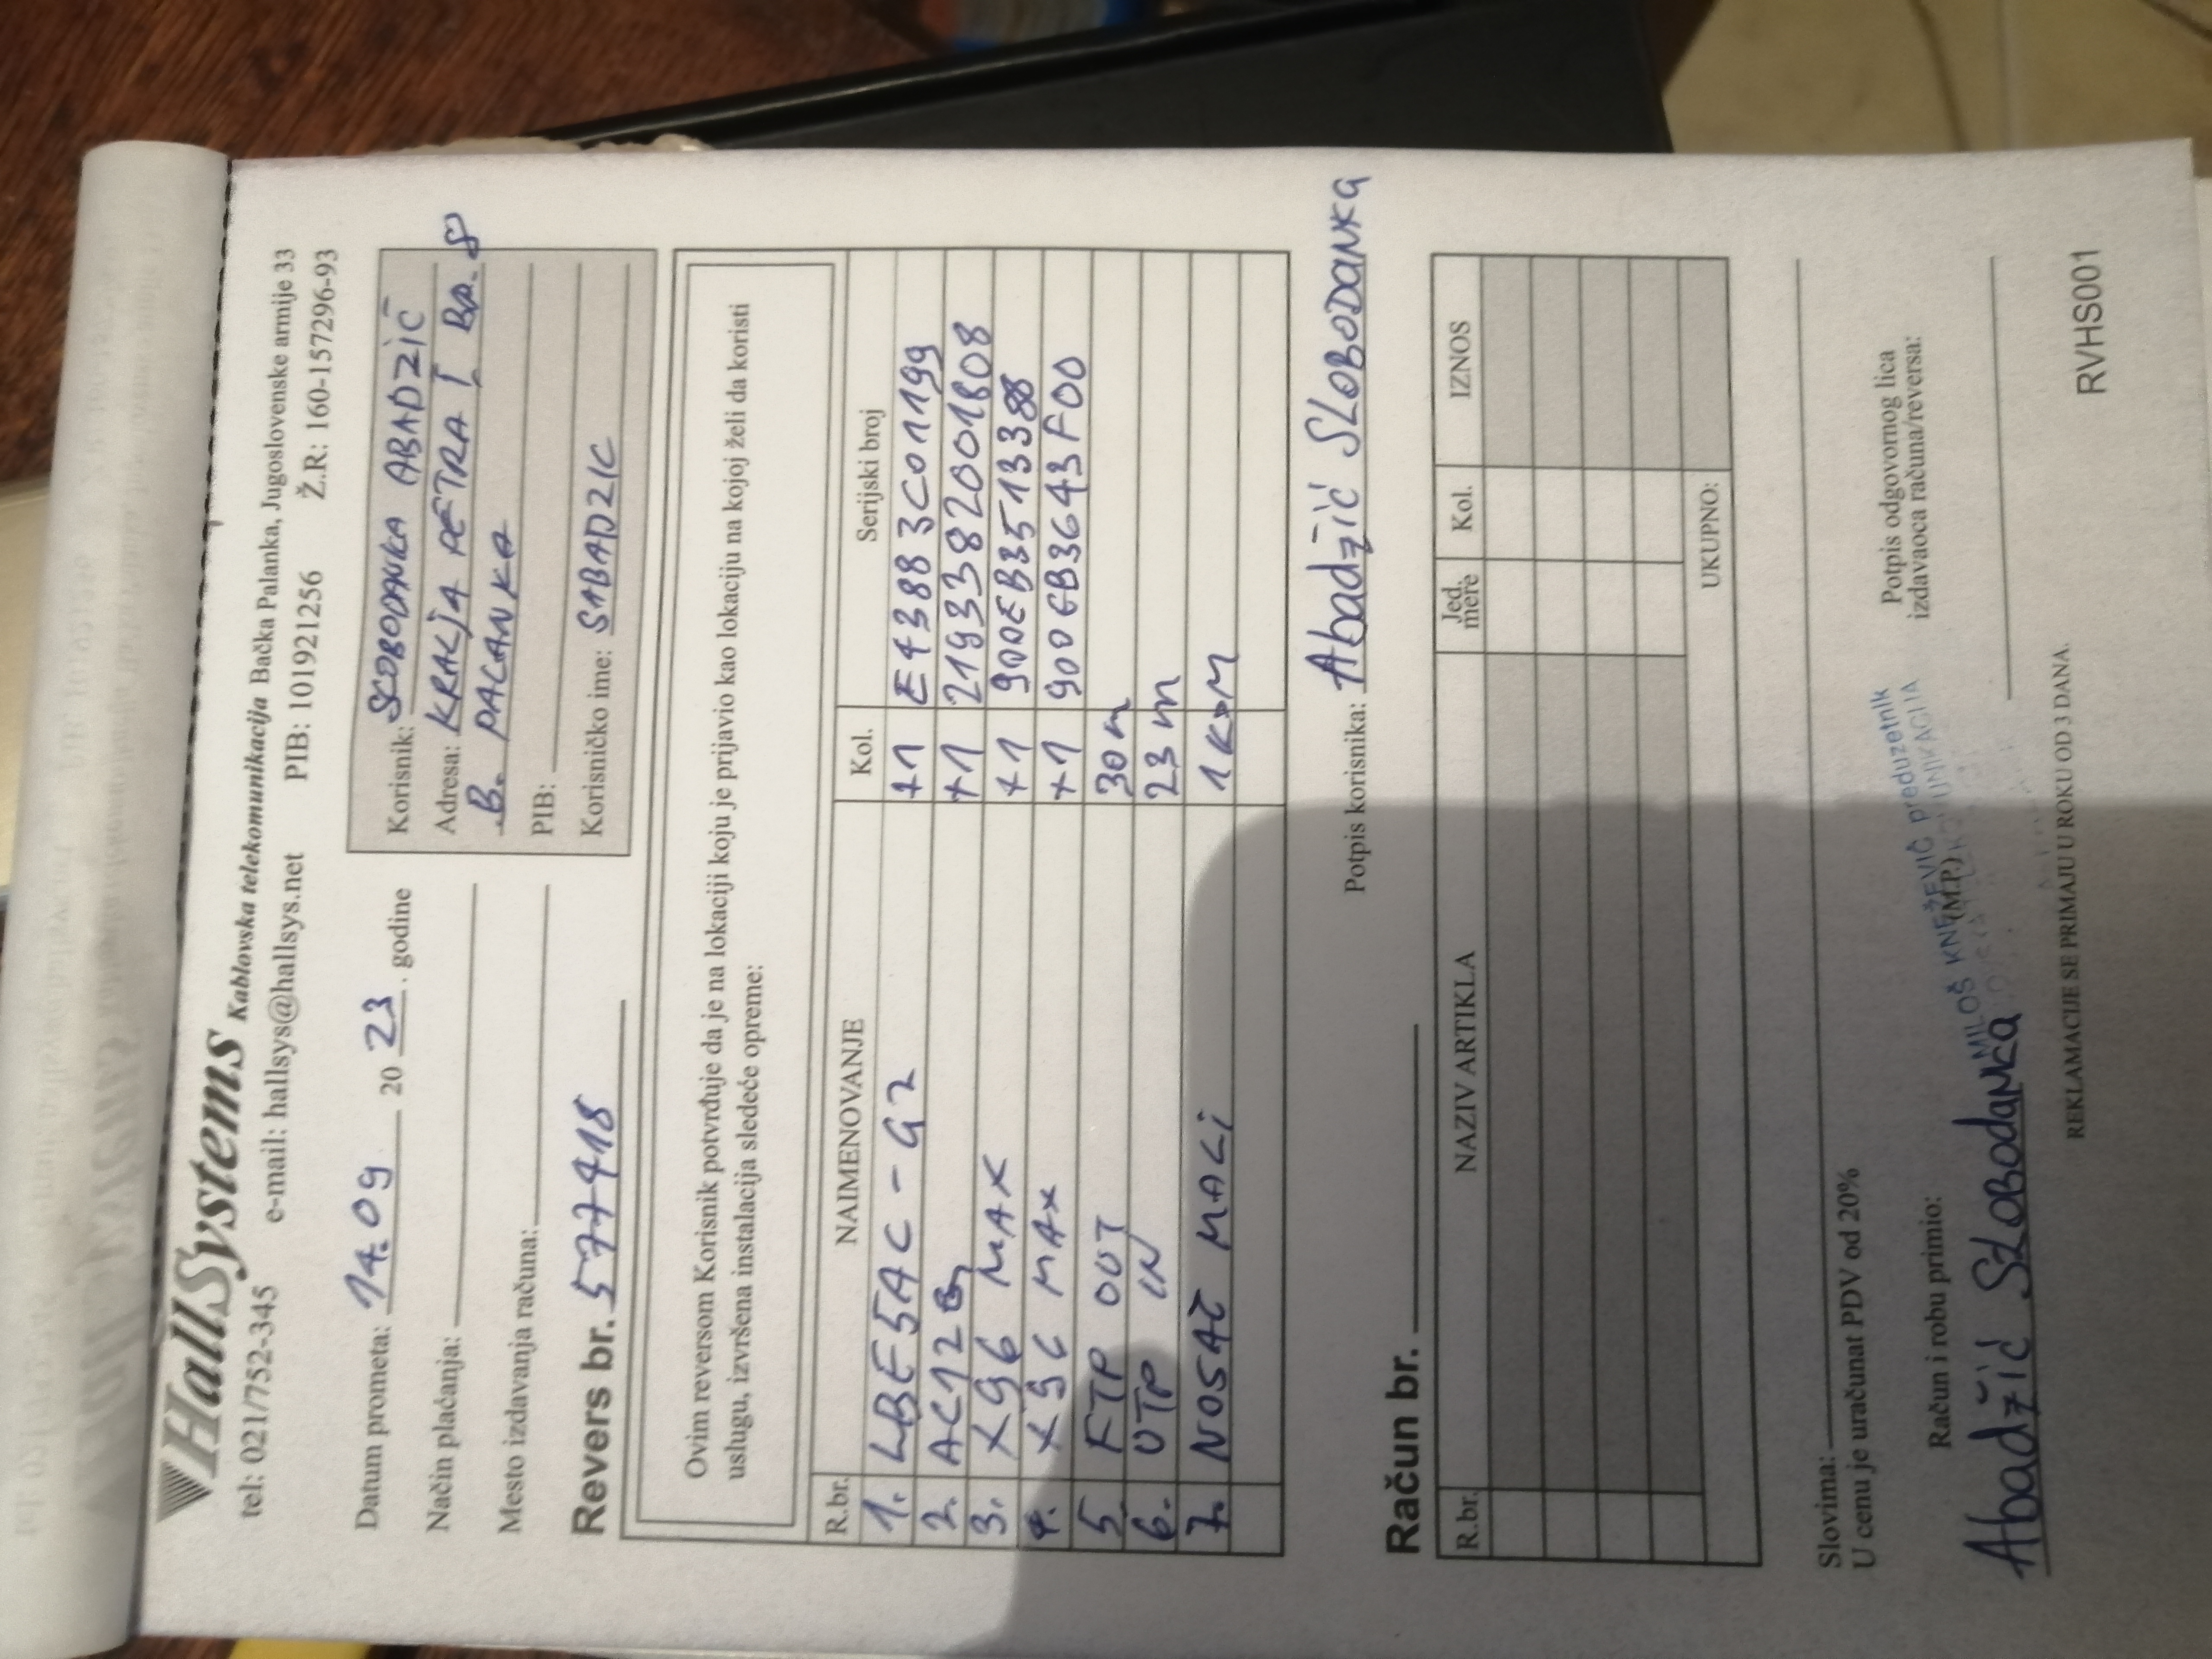 HallSystems Kablovska telekomunikacija Bačka Palanka, Jugoslovenske armije 33
tel: 021/752-345 e-mail: hallsys@hallsys.net PIB: 101921256 Ž.R.: 160-157296-93
Datum prometa: 14.09 20 23. godine
Način plaćanja:
Mesto izdavanja računa:
Korisnik: SLOBODANKA ABADZIĆ
Adresa: KRALJA PETRA I BR. 8
B. PALANKA
PIB:
Korisničko ime: SABADZIC
Revers br. 577418
Ovim reversom Korisnik potvrđuje da je na lokaciji koju je prijavio kao lokaciju na kojoj želi da koristi
uslugu, izvršena instalacija sledeće opreme:
R.br. NAIMENOVANJE Kol. Serijski broj
1. LBE5AC-G2 +1 E43883C01199
2. AC12G +1 2193382001808
3. X96 MAX +1 900EB3513388
4. X96 MAX +1 900EB3643F00
5. FTP OUT 30m
6. UTP IN 23m
7. NOSAČ MALI 1KOM
Potpis korisnika: Abadžić SLOBODANKA
Račun br.
R.br. NAZIV ARTIKLA Jed. mere Kol. IZNOS
UKUPNO:
Slovima:
U cenu je uračunat PDV od 20%
Račun i robu primio:
Abadžić SLOBODANKA
MILOŠ KNEŽEVIĆ preduzetnik
(M.P.)
Potpis odgovornog lica
izdavaoca računa/reversa:
REKLAMACIJE SE PRIMAJU U ROKU OD 3 DANA.
RVHS001